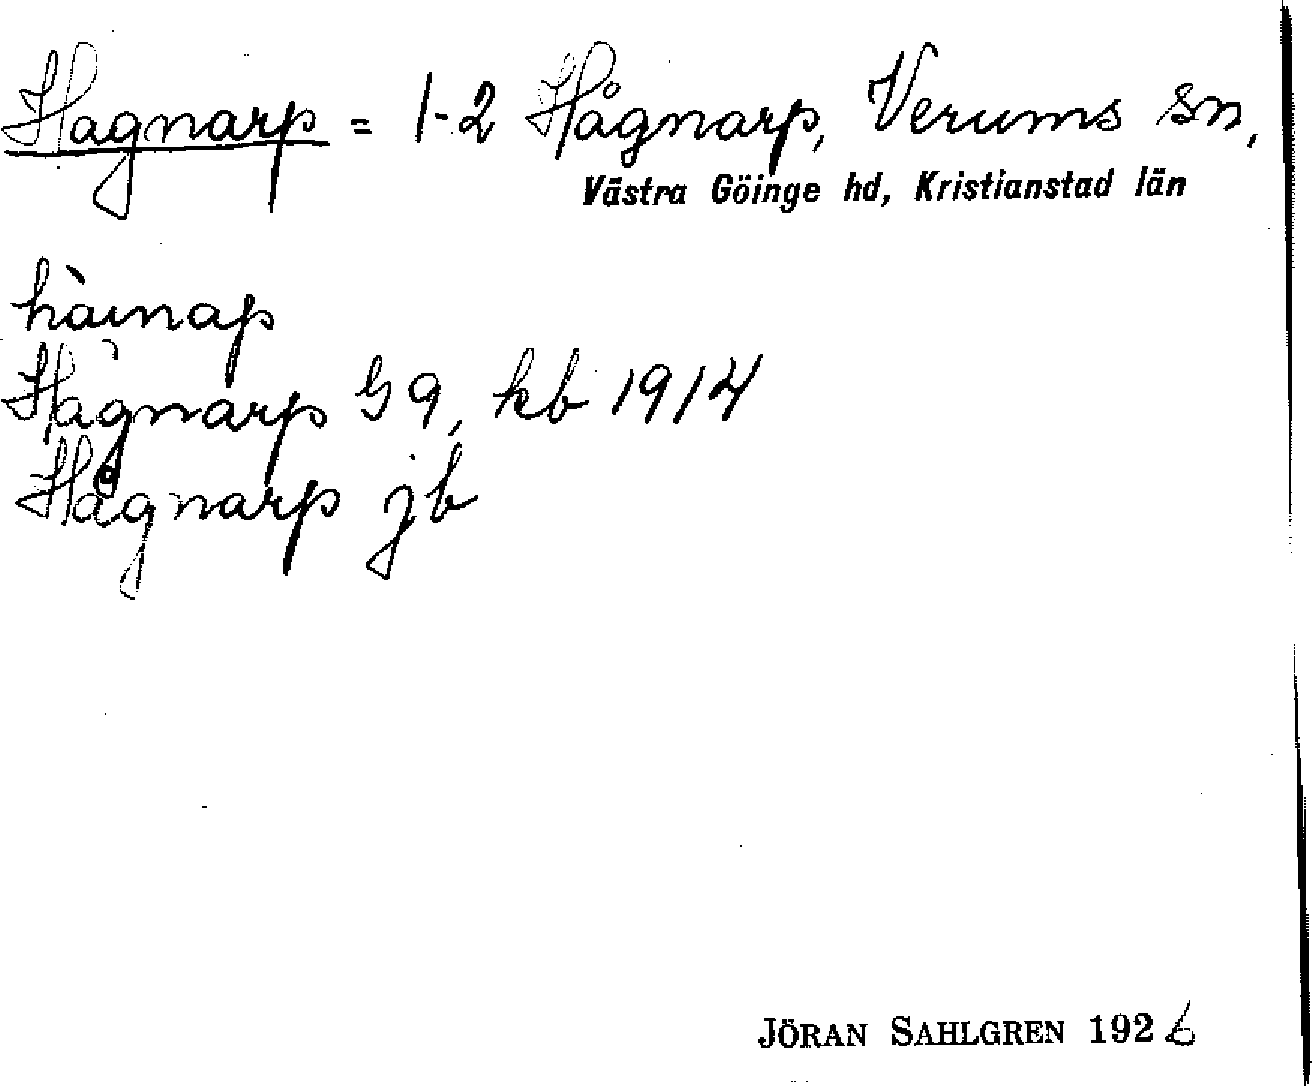 Hagnarp = 1-2 Hågnarp, Verums sn,
Västra Göinge hd, Kristianstad län
hàınap
Hagnarp G9, kb 1914
Hågnarp jb
JÖRAN SAHLGREN 1926